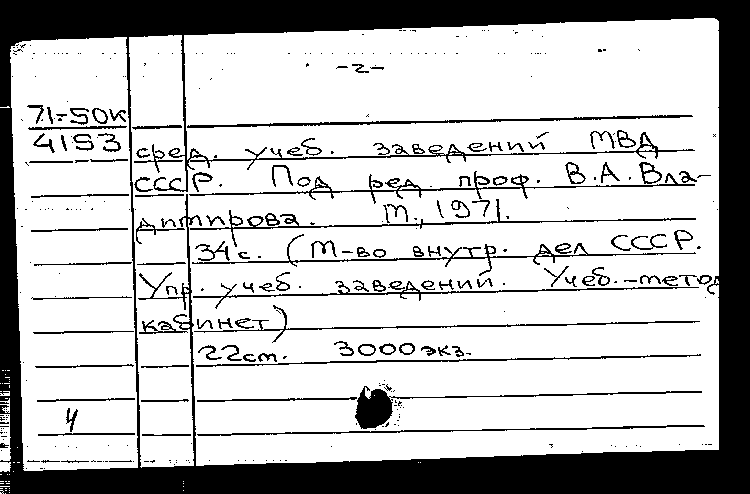 -2-
71-50К
4153
сред. учеб. заведений МВД
СССР. Под ред проф. В.А.Вла-
димирова. М., 1971.
34с. (М-во внутр. дел СССР.
Упр. учеб. заведений. Учеб.-метод
кабинет)
22см. 3000экз.
Ч